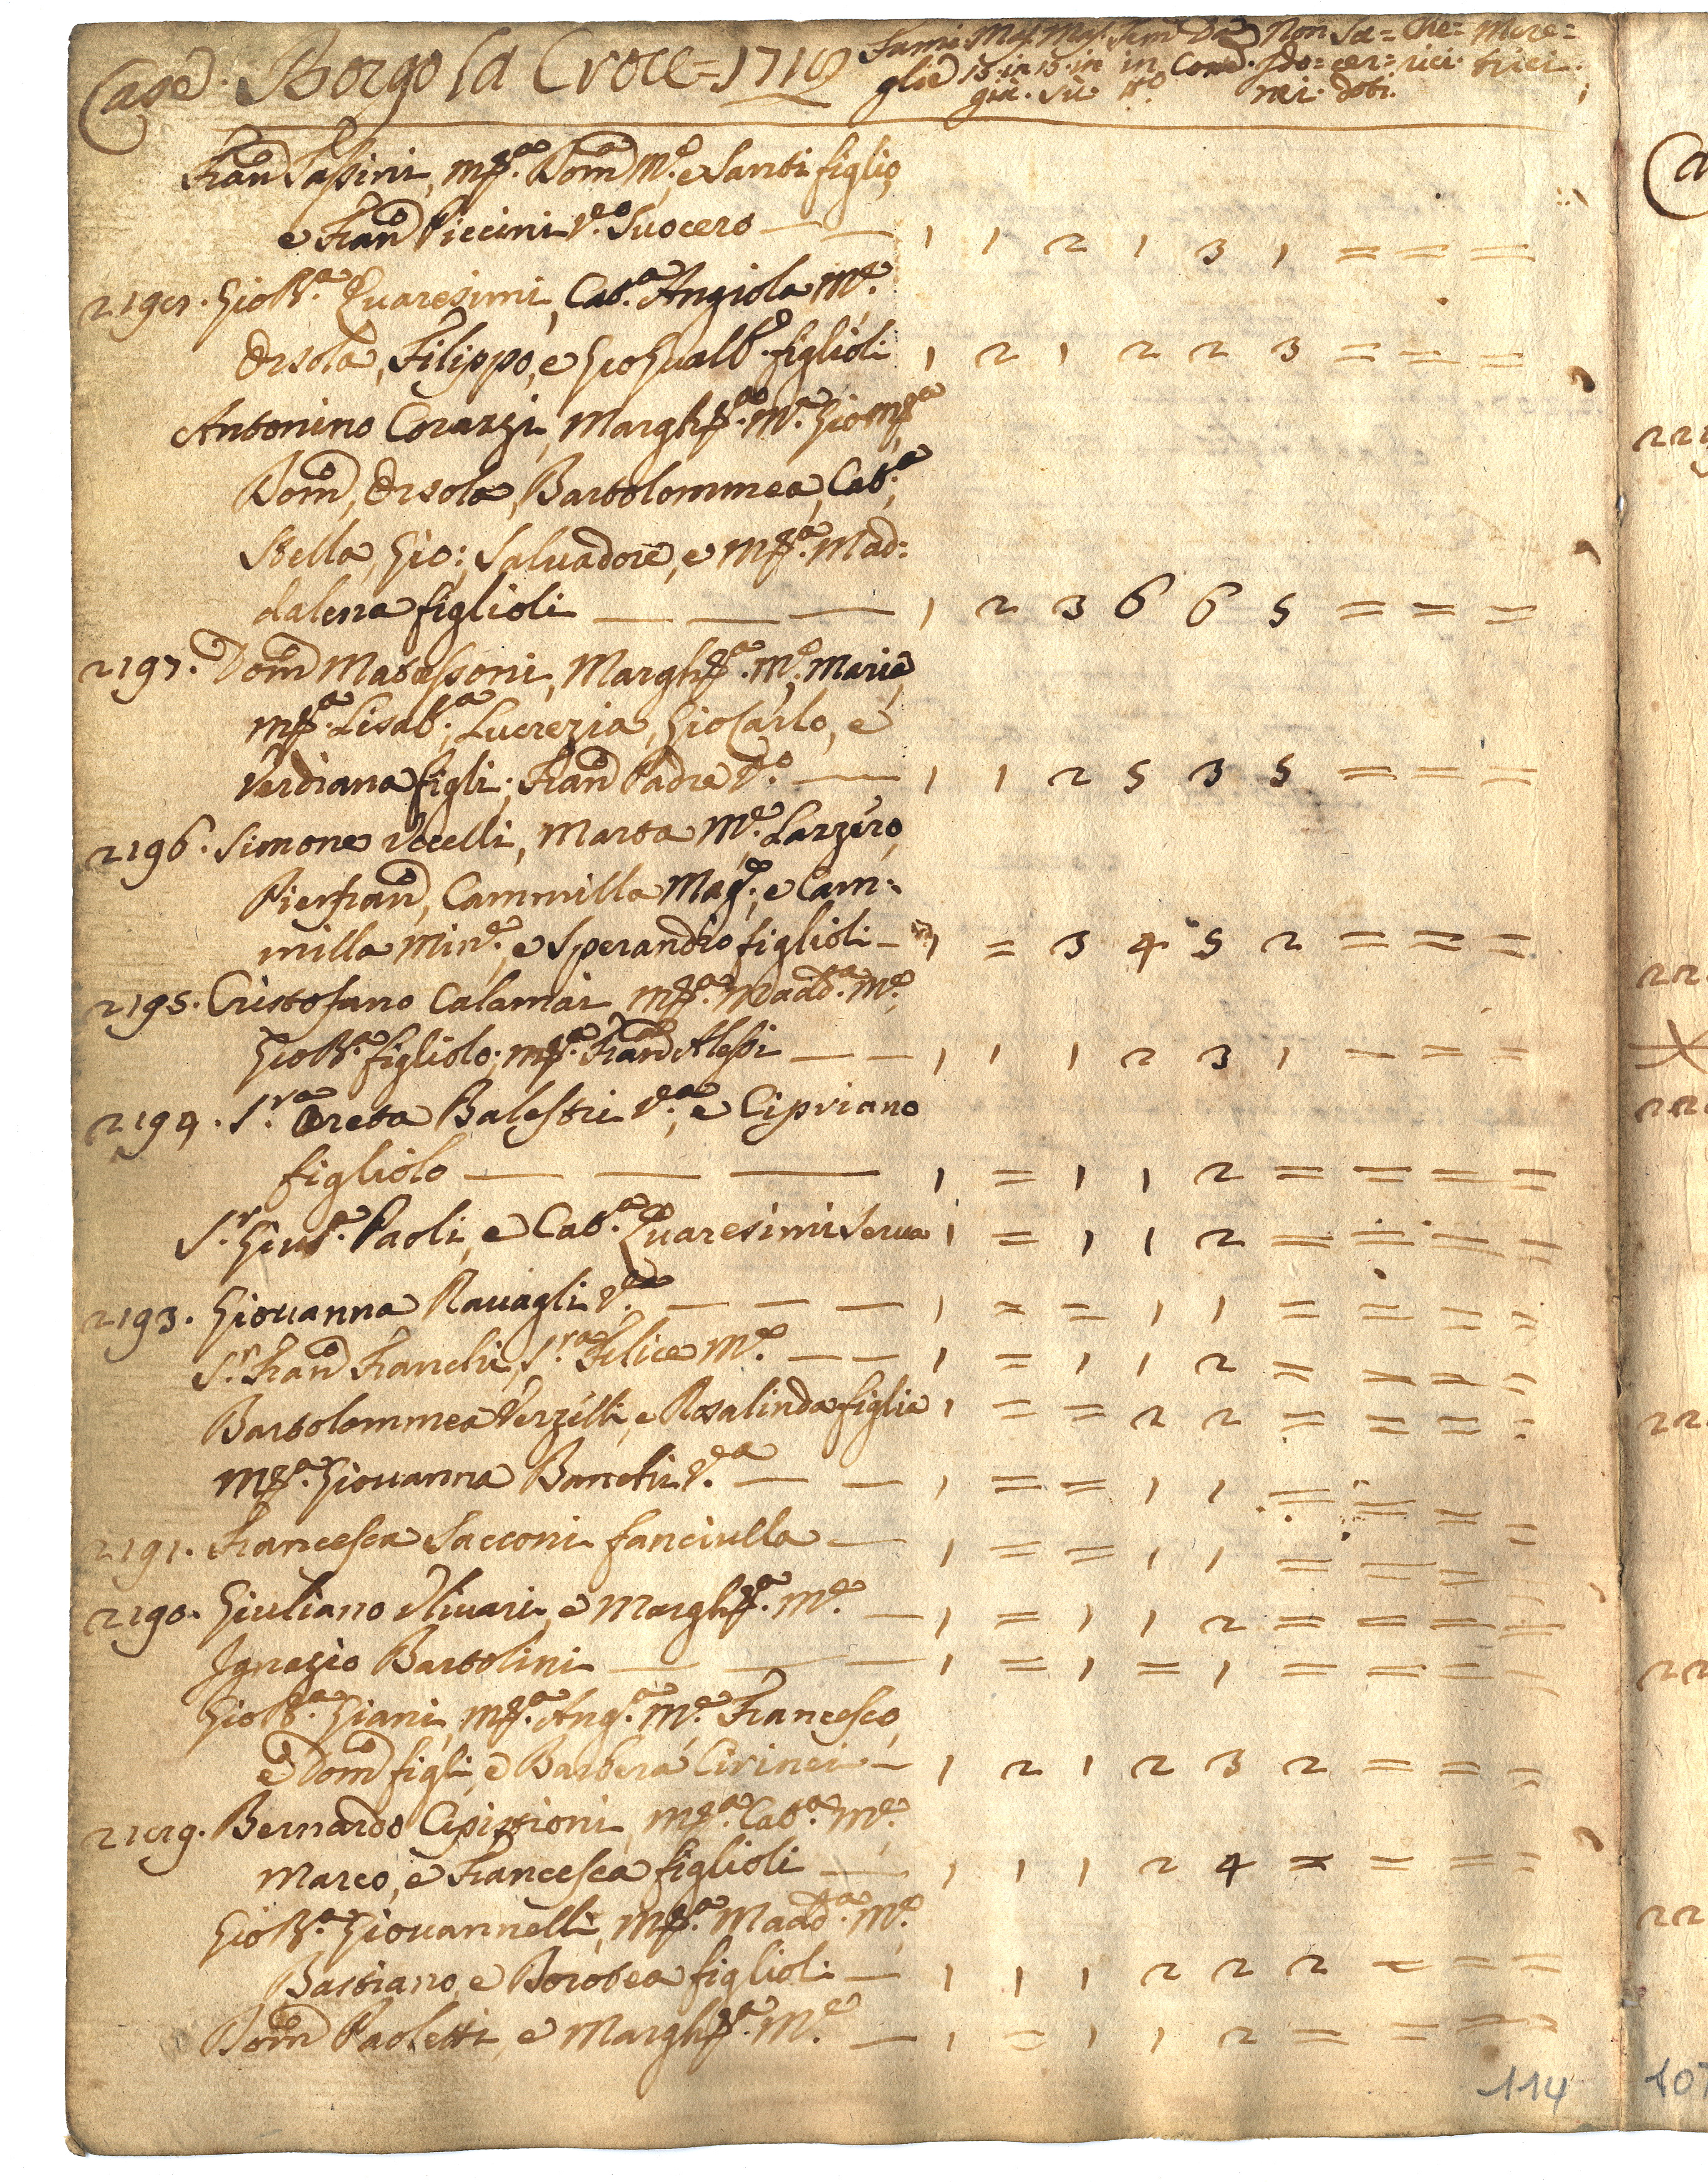 Case. Borgo la Croce = 1718 Fami= Mas. Mas. Fem. Da Non Sa= Che= Mere=
glie 15 in 15 in in Com. ido= cer= rici. trici.
giù. sù. tto nei. doti.
Fran.co Sassini, M.ª Dom.ca M.e, e Santi figlio,
e Fran.co Piccini V.o Suocero — — 1 1 2 1 3 1 = = =
2198. Gio B.a Quaresimi, Cat.a Angiola M.e
Orsola, Filippo, e Gio Gualb.o figlioli 1 2 1 2 2 3 = = =
Antonino Corazzi, Margh.ta M.e Gio M.a
Dom.co, Orsola, Bartolommea, Cat.a,
Stella, Gio:, Salvadore, e M.ª Mad=
dalena figlioli — — — 1 2 3 6 6 5 = = =
2197. Dom.co Matassoni, Margh.ta M.e, Maria
M.ª Lisab.a, Lucrezia, Gio Carlo, e
Verdiana figli; Fran.co Padre V.o — 1 1 2 5 3 5 = = =
2196. Simone Vccelli, Marta M.e Lazzero,
Pierfran.co, Cammilla Mag.e, e Cam=
milla Min.e, e Sperandio figlioli — 1 = 3 4 5 2 = = =
2195. Cristofano Calamai, M.ª Madd.a M.e
Gio B.a figliolo; M.ª Fran.ca Alessi — — 1 1 1 2 3 1 — = =
2194. S.ra Oreta Balestri V.a, e Cipriano
figliolo — — — 1 = 1 1 2 = = = =
S.r Gius.e Paoli, e Cat.a Quaresimi Serua 1 = 1 1 2 = = = =
2193. Giouanna Rauagli V.a — — — 1 = = 1 1 = = = =
S.r Fran.co Franchi, S.ra Felice M.e — — 1 = 1 1 2 = = = =
Bartolommea Verzelli, e Rosalinda figlia 1 = = 2 2 = = = =
M.ª Giouanna Banchi V.a — — 1 = = 1 1 = = = =
2191. Francesca Sacconi fanciulla — 1 = = 1 1 = = = =
2190. Giuliano Vliuari, e Margh.ta M.e — 1 = 1 1 2 = = = =
Ignazio Bartolini — — — 1 = 1 = 1 = = = =
Gio B.a Giani, M.ª Ang.a M.e Francesco,
e Dom.co figli, e Barbera Cirinei — 1 2 1 2 3 2 = = =
2189. Bernardo Capissioni, M.ª Cat.a M.e
Marco, e Francesca figlioli — 1 1 1 2 4 = = = =
Gio B.a Giouannelli, M.ª Madd.a M.e
Bastiano, e Dorotea figlioli — 1 1 1 2 2 2 = = =
Dom.co Paoletti, e Margh.ta M.e — 1 = 1 1 2 = = =
114